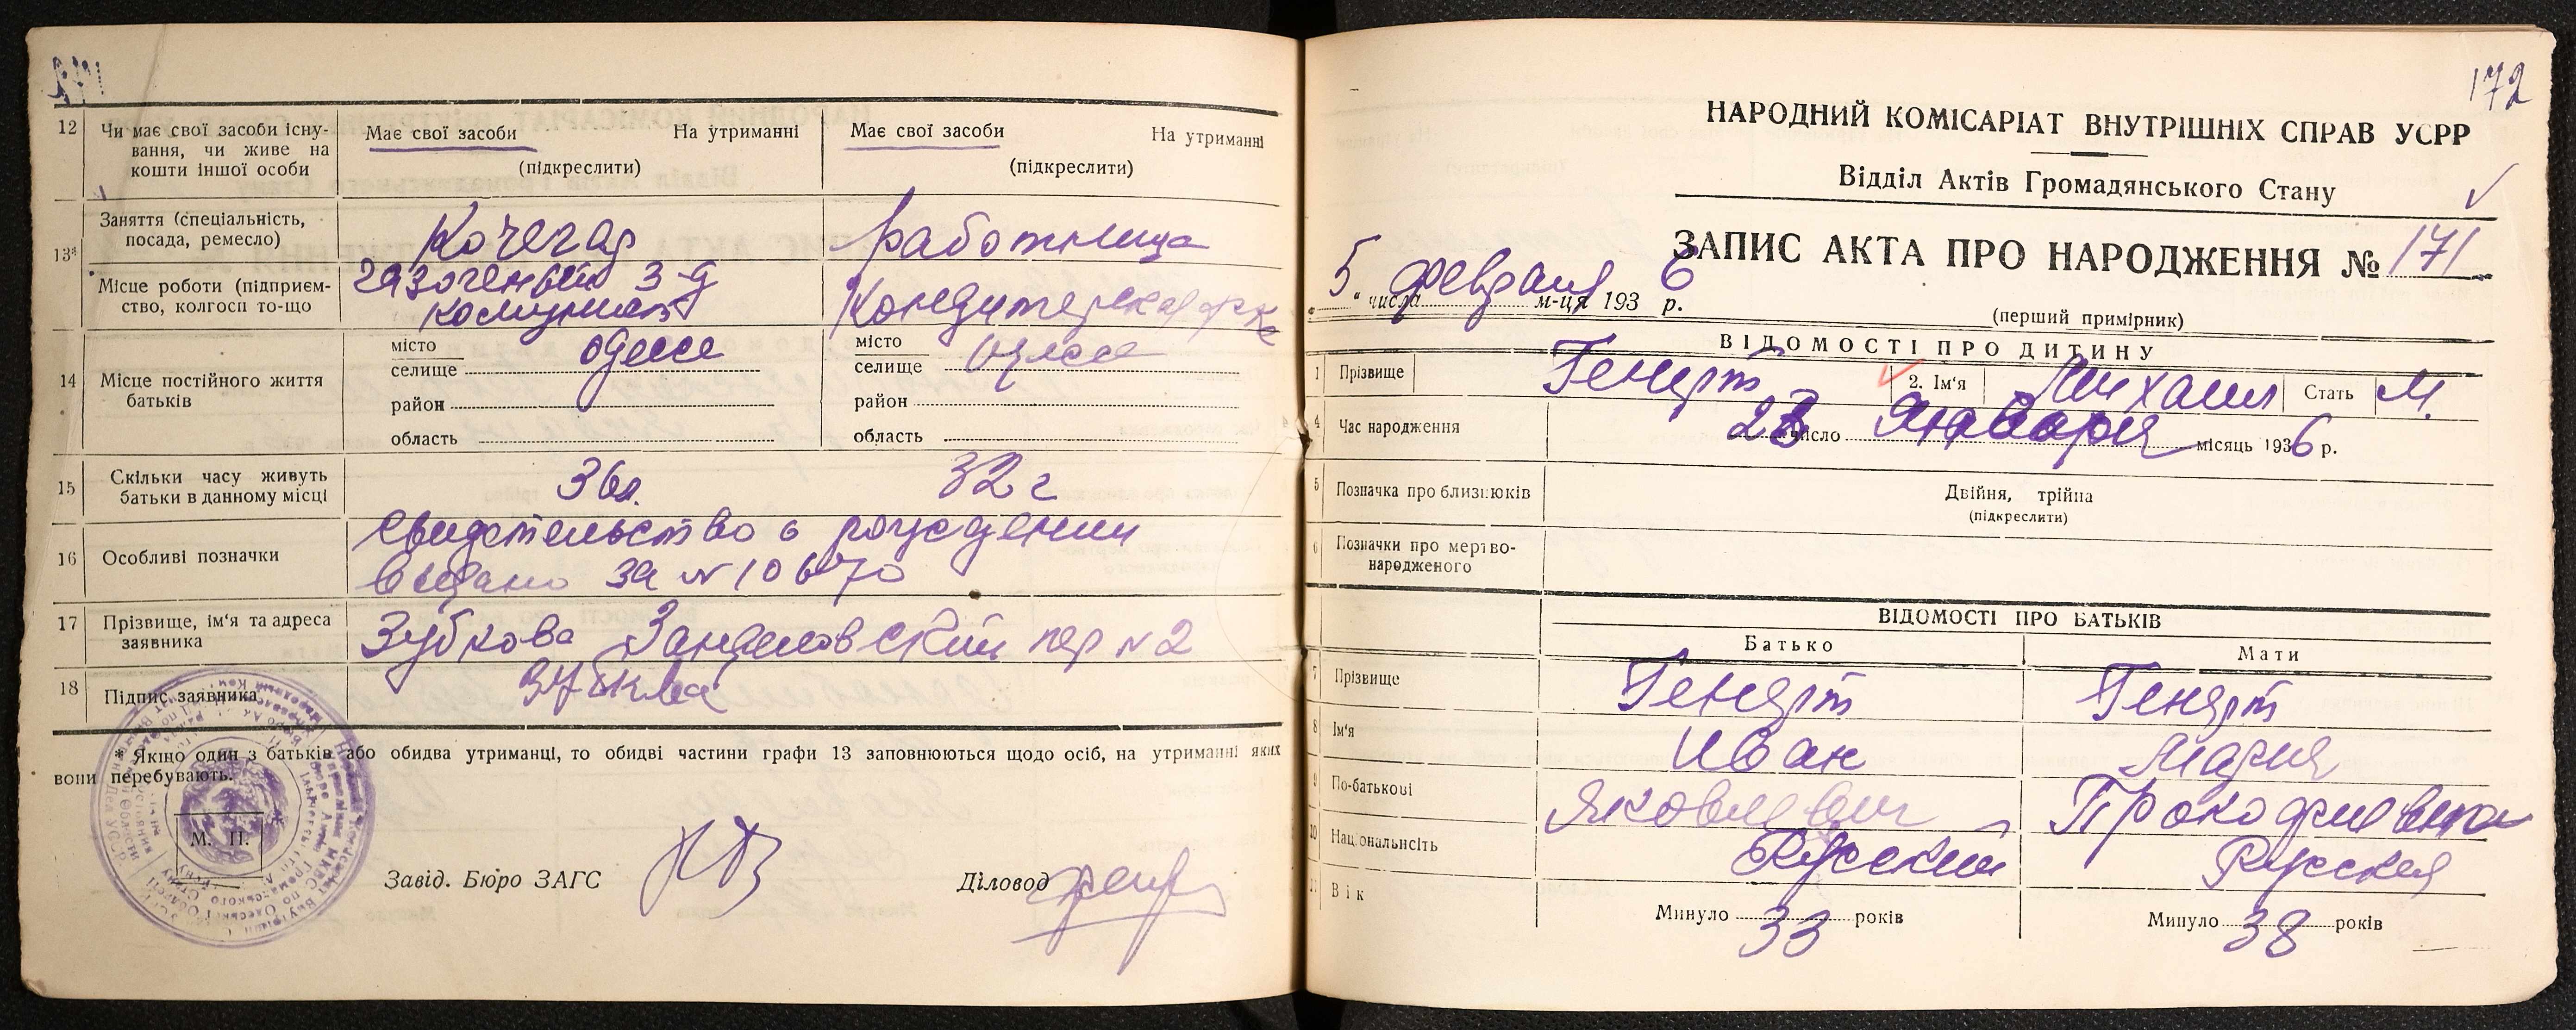 12
Чи має свої засоби існування, чи живе на кошти іншої особи
Має свої засоби На утриманні
(підкреслити)
Має свої засоби На утриманні
(підкреслити)
13*
Заняття (спеціальність, посада, ремесло)
Кочегар
работница
Місце роботи (підприємство, колгосп то-що
з-д
Кондитерская ф-ка
14
Місце постійного життя батьків
місто
селище
одесса
район
область
місто
селище
Одесса
район
область
15
Скільки часу живуть батьки в данному місці
32 г
16
Особливі позначки
Свидетельство о рождении
выдано за №
17
Прізвище, ім'я та адреса заявника
Зубкова пер № 2
18
Підпис заявника
Зубкова
* Якщо один з батьків або обидва утриманці, то обидві частини графи 13 заповнюються щодо осіб, на утриманні яких
вони перебувають.
М. П.
Завід. Бюро ЗАГС
Діловод
172
НАРОДНИЙ КОМІСАРІАТ ВНУТРІШНІХ СПРАВ УСРР
Відділ Актів Громадянського Стану
ЗАПИС АКТА ПРО НАРОДЖЕННЯ № 171
"5" числа февраля м-ця 1936 р.
(перший примірник)
ВІДОМОСТІ ПРО ДИТИНУ
1 Прізвище Генерт 2. Ім'я Михаил Стать М.
4 Час народження число Января місяць 1936 р.
5 Позначка про близнюків
Двійня, трійпа
(підкреслити)
6 Позначки про мертвонародженого
ВІДОМОСТІ ПРО БАТЬКІВ
Батько Мати
7 Прізвище Генерт Генерт
8 Ім'я Иван Мария
9 По-батькові Яковлевич Прокофиевна
10 Національність Русский Русская
11 Вік Минуло 33 років Минуло 38 років